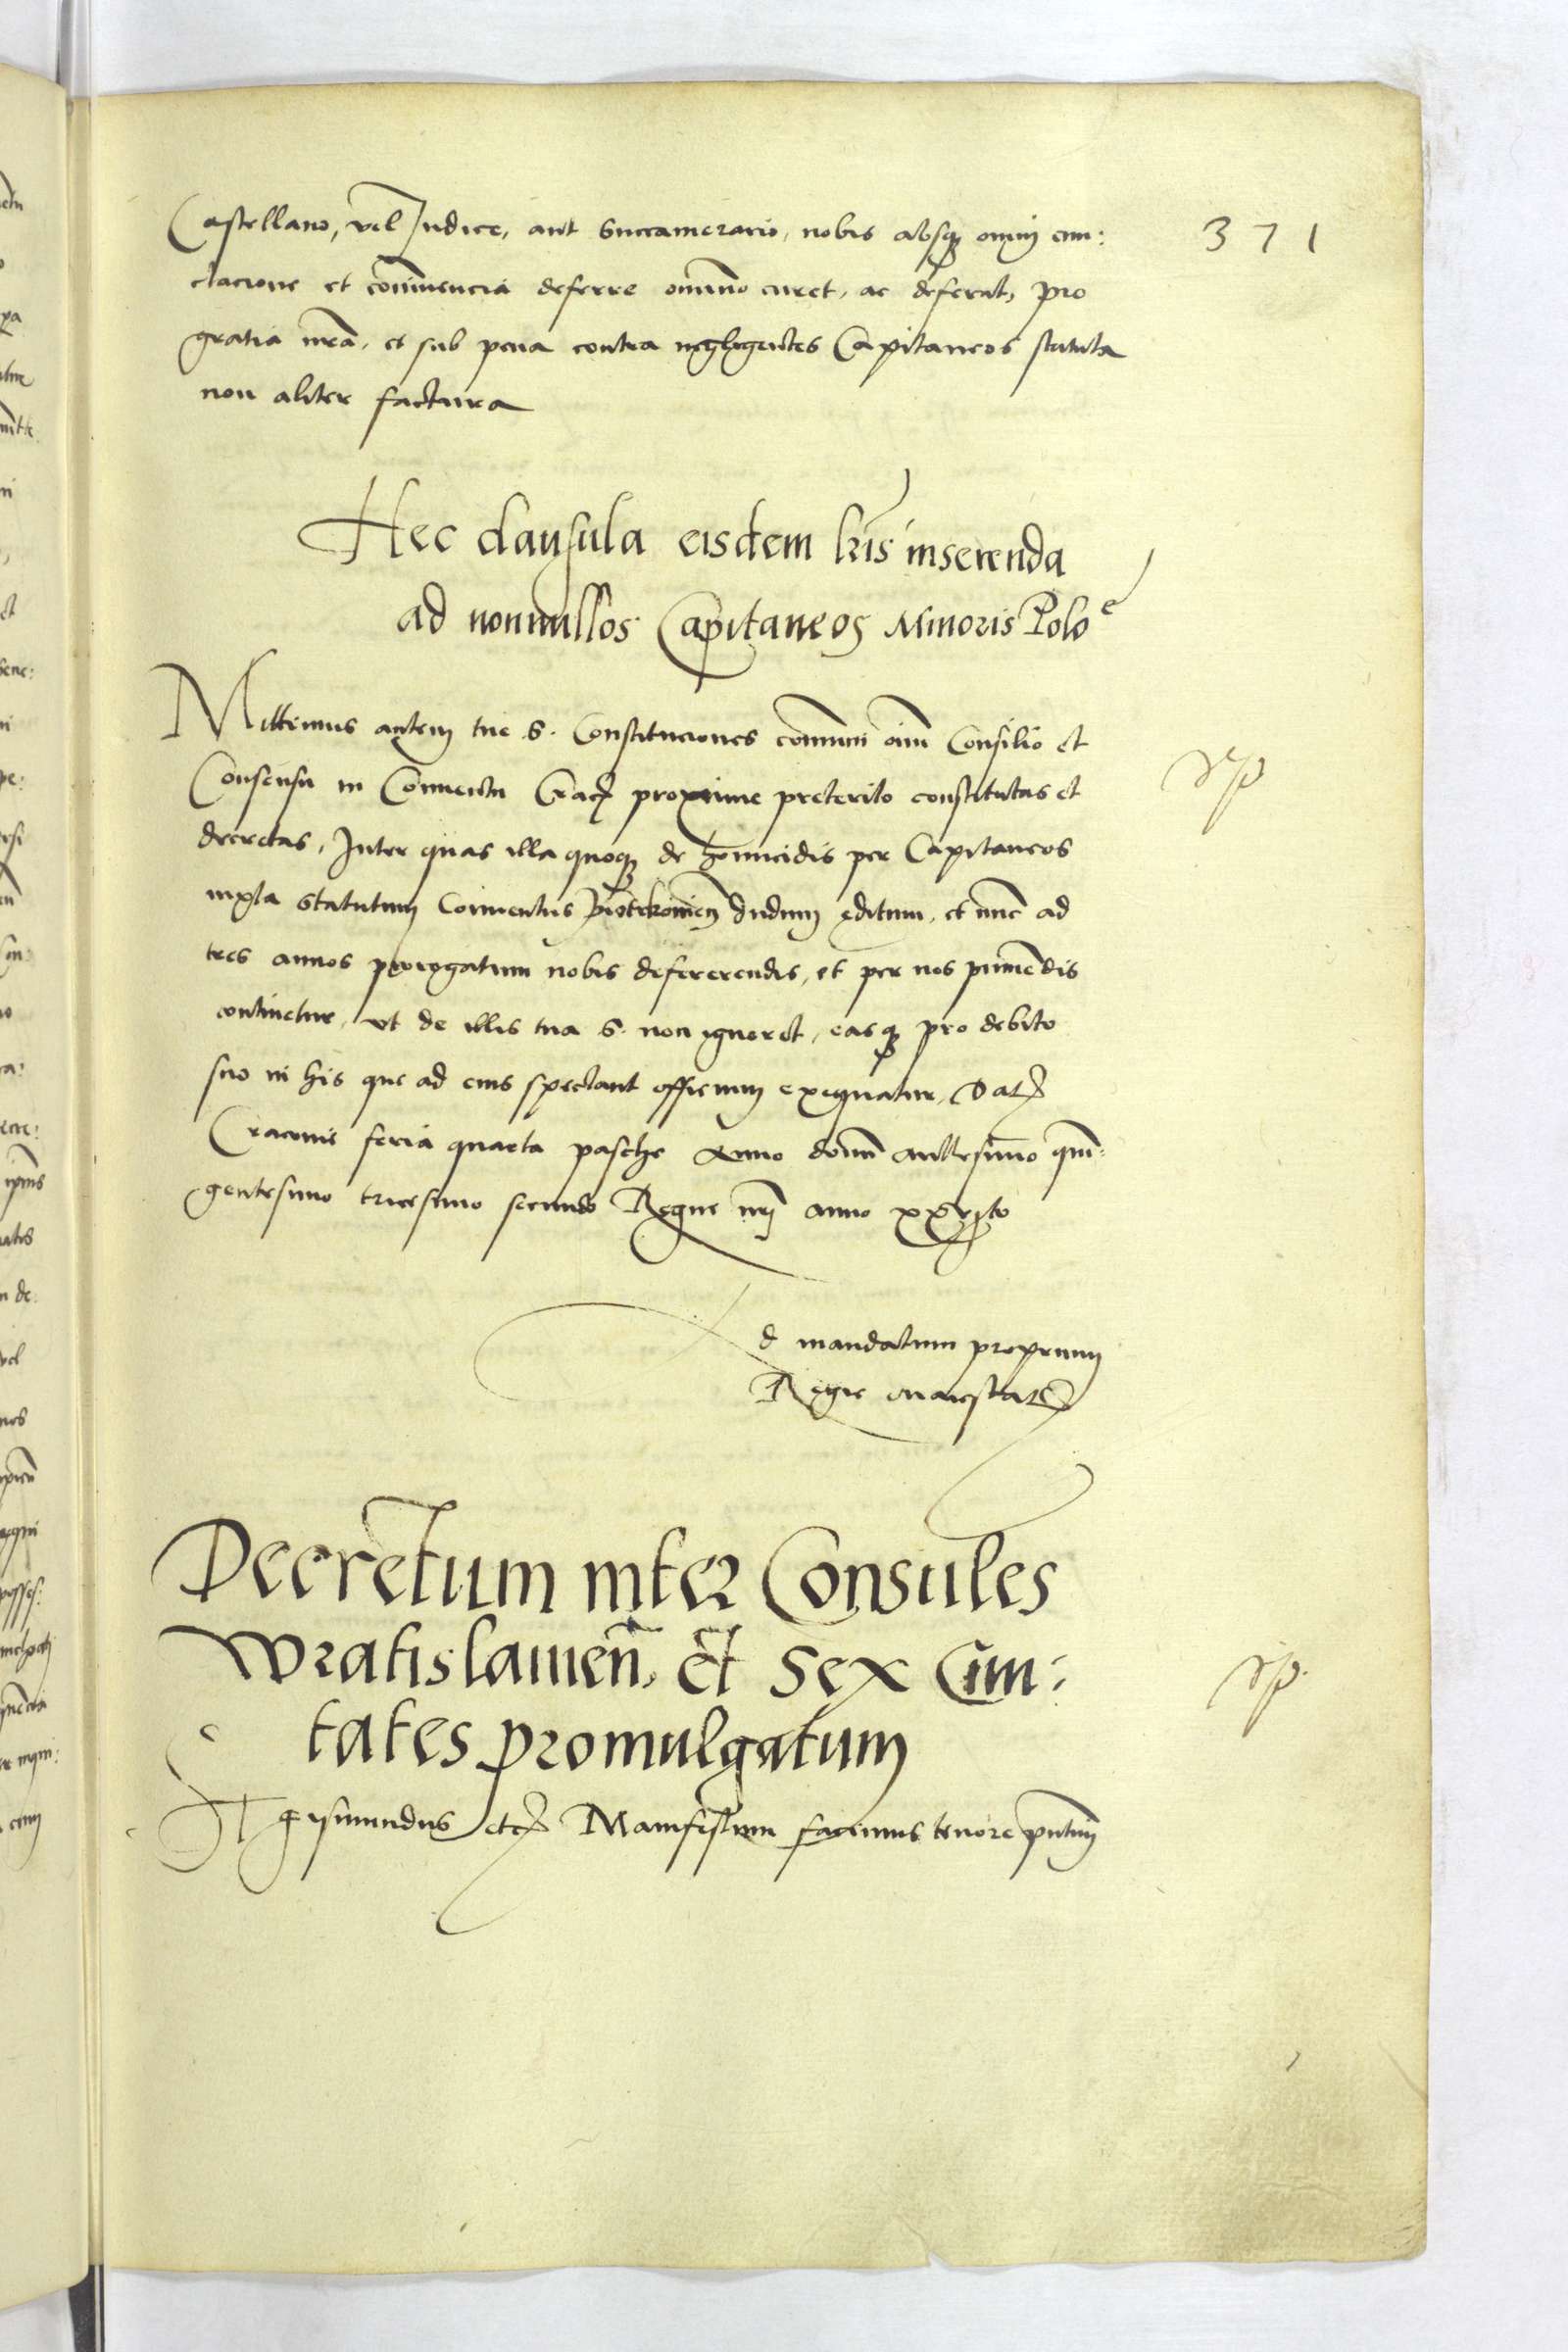 371
Castellano, vel Iudice, aut Succamerario, nobis absq₃ omni cun:
ctacione et conniuencia deferre omnino curet, ac deferat, pro
gratia nr̄a, et sub pena contra negligentes Capitaneos statuta
non aliter factura
Hec clausula eisdem lr̄is inserenda
ad nonnullos Capitaneos Minoris Poloe
Mittimus autem tue S. Constituciones com̄uni oīm Consilio et
Consensu in Conuentu Crac̄ proxime preterito constitutas et
decretas, Inter quas illa quoq₃ de homicidis per Capitaneos
iuxta statutum Conuentus Piotrkouien̄ dudum editum, et nunc ad
tres annos prorogatum nobis defererendis, et per nos puniēdis
continetur, vt de illis tua S. non ignoret, easq₃ pro debito
suo in his que ad eius spectant officium exequatur, Dat̄
Cracouie feria quarta pasche Anno domī Millesimo quin:
gentesimo tricesimo secundo Regni nr̄i anno xxvito
Ad mandatum proprium
Regie Maiestatis
Decretum inter Consules
Wratislauien̄ et Sex Ciui:
tates promulgatum
Sigismundus etc̄ Manifestum facimus tenore pn̄tium